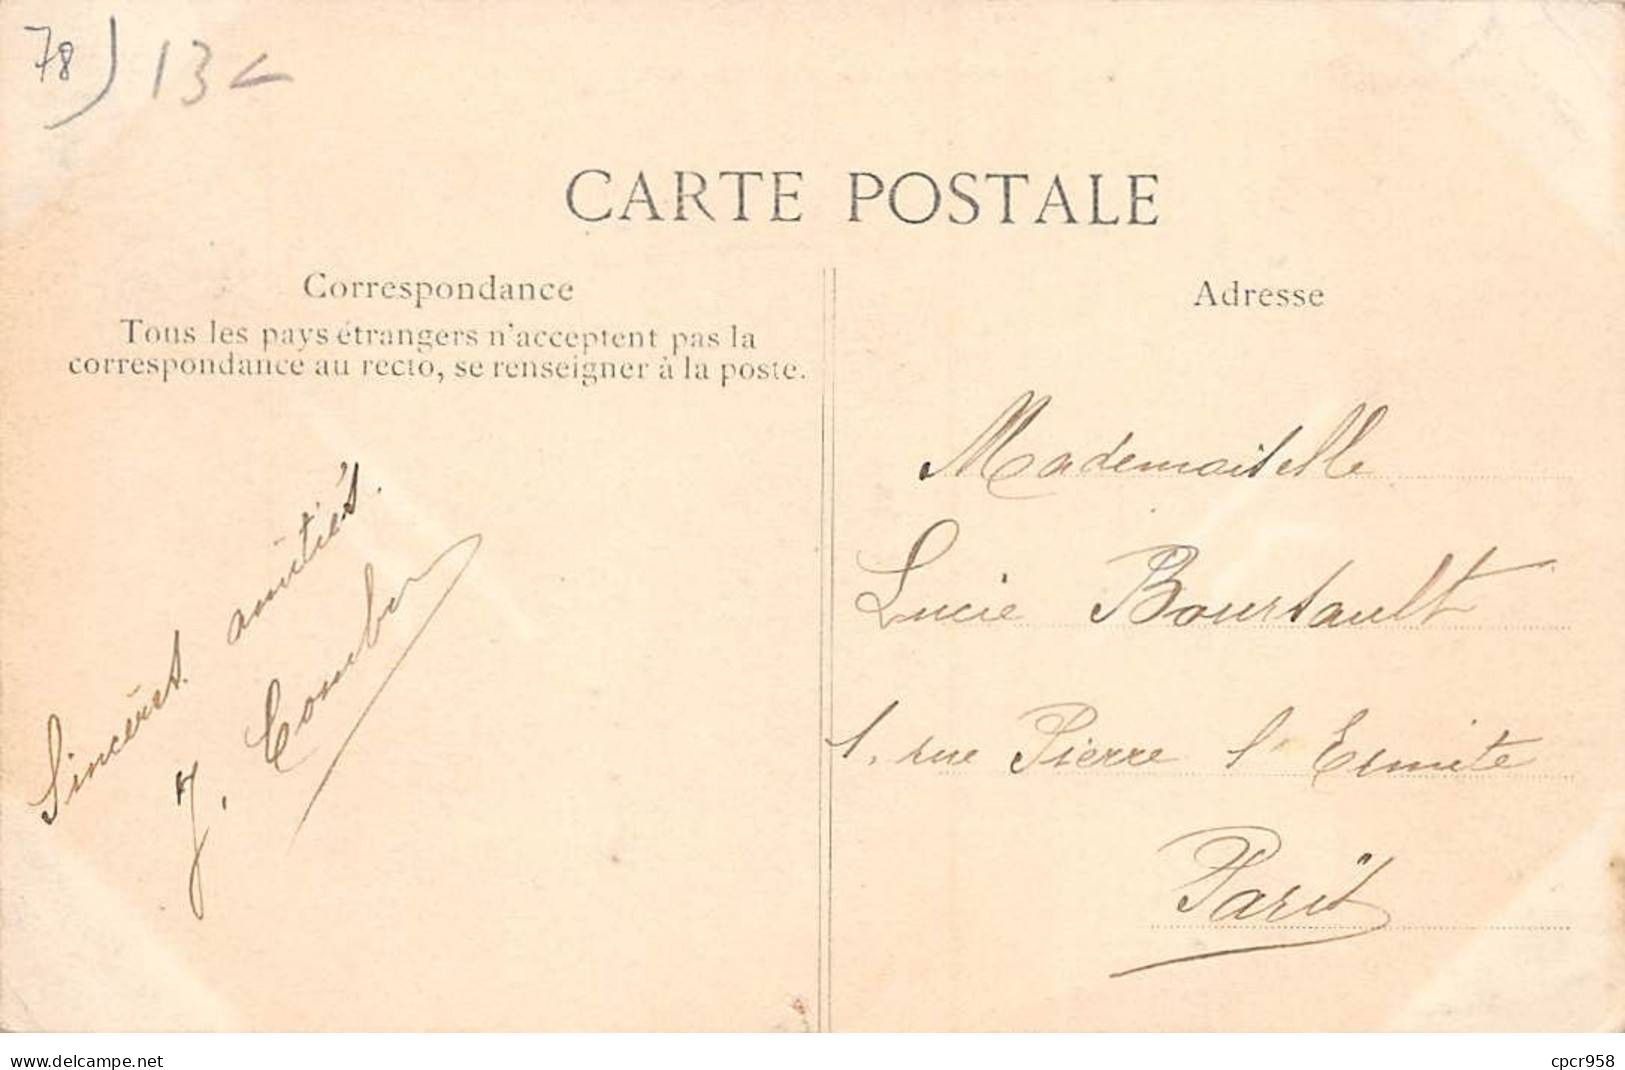 78) 13 <
CARTE POSTALE
Correspondance
Tous les pays étrangers n'acceptent pas la
correspondance au recto, se renseigner à la poste.
Sincères amitiés.
J.
Adresse
Mademoiselle
Lucie Boursault
1, rue Pierre l'Ermite
Paris
www.delcampe.net
cpcr958